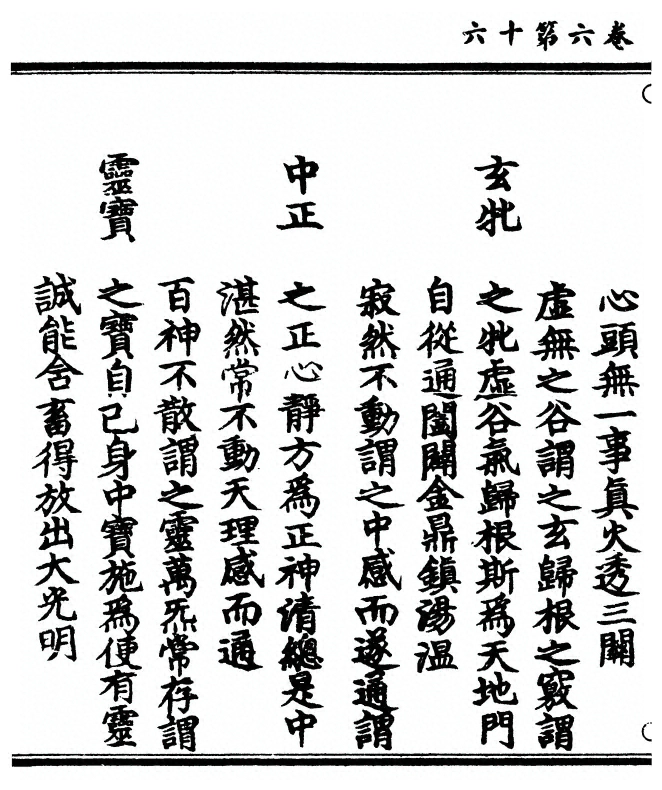 卷六第十六
心頭無一事真火透三關
虛無之谷謂之玄歸根之竅謂
玄牝
之牝虛谷氣歸根斯為天地門
自從通闔闢金鼎鎮湯溫
寂然不動謂之中感而遂通謂
中正
之正心靜方為正神清總是中
湛然常不動天理感而通
百神不散謂之靈萬炁常存謂
靈寶
之寶自己身中寶施為便有靈
誠能舍畜得放出大光明